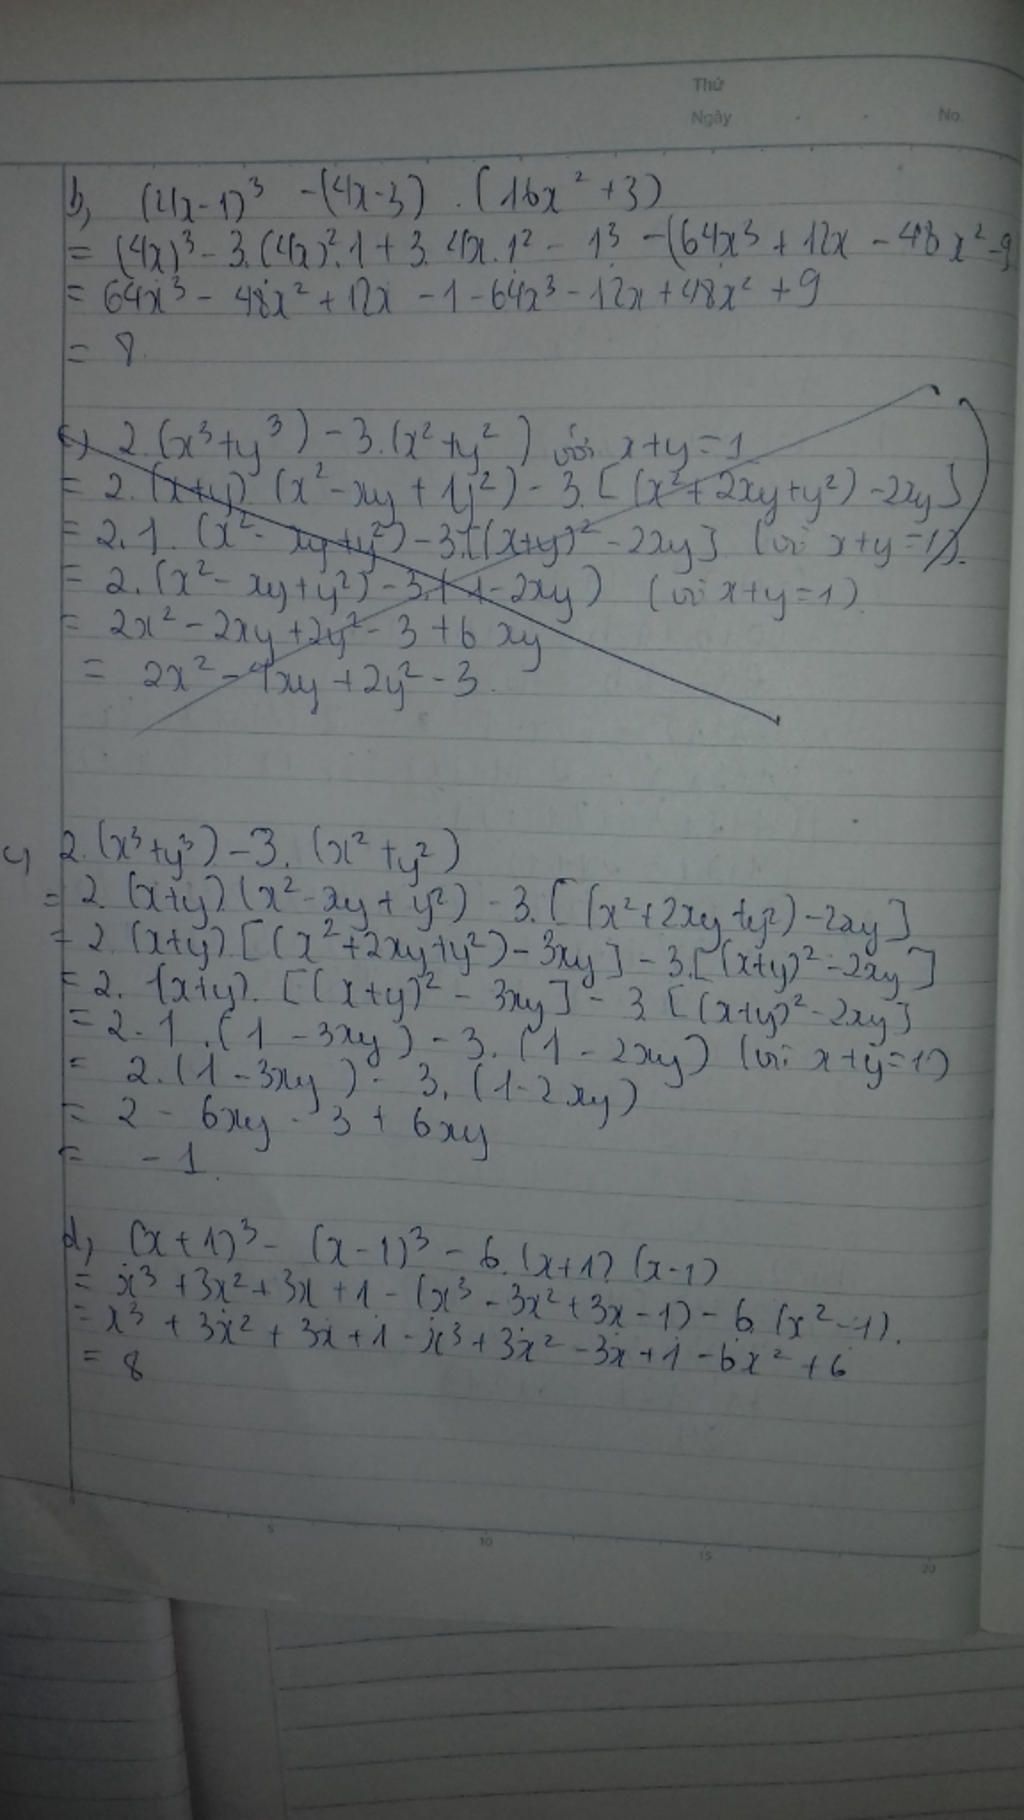 Thứ
Ngày No.
b, (4x-1)³ -(4x-3) . (16x² +3)
= (4x)³ - 3.(4x)².1 + 3.4x.1² - 1³ -(64x³ + 12x - 48x² - 9
= 64x³ - 48x² + 12x - 1 - 64x³ - 12x + 48x² + 9
= 8.
c) 2.(x³+y³) - 3.(x²+y²) với x+y=1
= 2.(x+y).(x²-xy+y²) - 3.[(x²+2xy+y²)-2xy]
= 2.1.(x²-xy+y²) - 3.[(x+y)²-2xy] (với x+y=1).
= 2.(x²-xy+y²) - 3.(1-2xy) (với x+y=1).
= 2x² - 2xy + 2y² - 3 + 6xy
= 2x² - 4xy + 2y² - 3.
c, 2.(x³+y³) - 3.(x²+y²)
= 2.(x+y).(x²-xy+y²) - 3.[(x²+2xy+y²)-2xy]
= 2.(x+y).[(x²+2xy+y²)-3xy] - 3.[(x+y)²-2xy]
= 2.(x+y).[(x+y)² - 3xy] - 3.[(x+y)²-2xy]
= 2.1.(1 - 3xy) - 3.(1 - 2xy) (với x+y=1)
= 2.(1-3xy) - 3.(1-2xy)
= 2 - 6xy - 3 + 6xy
= -1.
d, (x+1)³ - (x-1)³ - 6.(x+1).(x-1)
= x³ + 3x² + 3x + 1 - (x³ - 3x² + 3x - 1) - 6.(x²-1).
= x³ + 3x² + 3x + 1 - x³ + 3x² - 3x + 1 - 6x² + 6
= 8
5 10 15 20